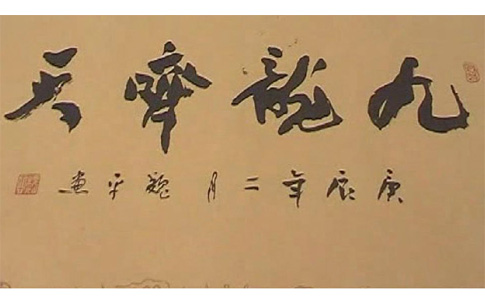 九龍齊天
庚辰年二月魏平